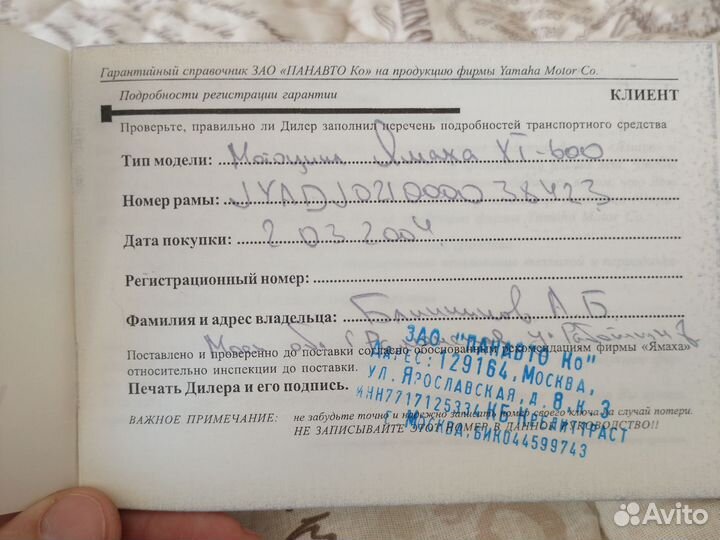 Гарантийный справочник ЗАО «ПАНАВТО Ко» на продукцию фирмы Yamaha Motor Co.
Подробности регистрации гарантии
КЛИЕНТ
Проверьте, правильно ли Дилер заполнил перечень подробностей транспортного средства
Тип модели: Мотоцикл Ямаха XT-600
Номер рамы: JYADJ021000038423
Дата покупки: 2 03 2004
Регистрационный номер:
Фамилия и адрес владельца: А Б
Моск обл г
Поставлено и проверенно до поставки согласно обоснованным рекомендациям фирмы «Ямаха»
относительно инспекции до поставки.
Печать Дилера и его подпись.
ЗАО "ПАНАВТО Ко"
АДРЕС: 129164, МОСКВА,
УЛ. ЯРОСЛАВСКАЯ, Д. 8, К. 3
ИНН7717125334 КБ КРЕДИТТРАСТ
Г. МОСКВА, БИК044599743
ВАЖНОЕ ПРИМЕЧАНИЕ: не забудьте точно и надежно записать номер своего ключа на случай потери.
НЕ ЗАПИСЫВАЙТЕ ЭТОТ НОМЕР В ДАННОЕ РУКОВОДСТВО!!
Avito